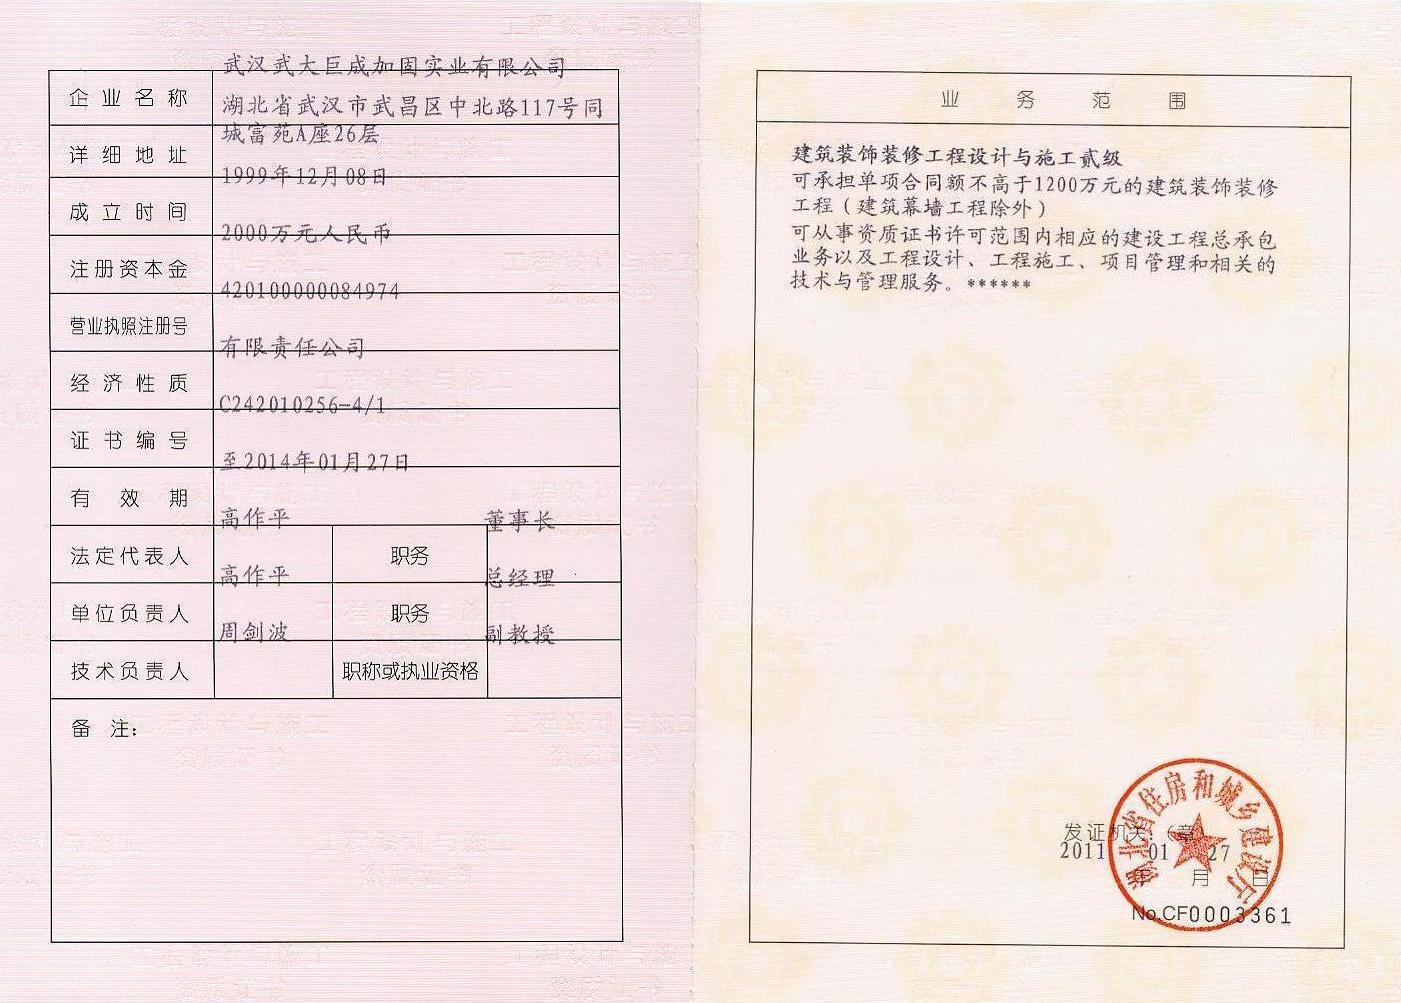 武汉武大巨成加固实业有限公司
企业名称
湖北省武汉市武昌区中北路117号同
城富苑A座26层
详细地址
1999年12月08日
成立时间
2000万元人民币
注册资本金
420100000084974
营业执照注册号
有限责任公司
经济性质
C242010256-4/1
证书编号
至2014年01月27日
有效期
高作平 董事长
法定代表人 职务
高作平 总经理
单位负责人 职务
周剑波 副教授
技术负责人 职称或执业资格
备注：
业务范围
建筑装饰装修工程设计与施工贰级
可承担单项合同额不高于1200万元的建筑装饰装修
工程（建筑幕墙工程除外）
可从事资质证书许可范围内相应的建设工程总承包
业务以及工程设计、工程施工、项目管理和相关的
技术与管理服务。******
湖北省住房和城乡建设厅
发证机关：（章）
2011 01 27
月 日
No.CF0003361
工程设计与施工
资质证书